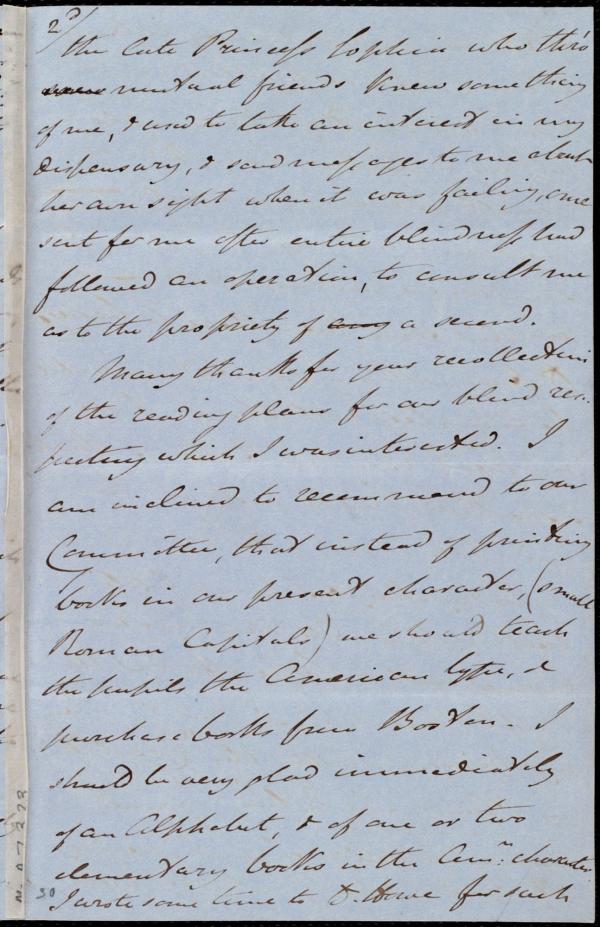 2d/
the late Princess Sophia who thro'
mutual friends knew something
of me, & used to take an interest in my
dispensary, & send messages to me about
her own sight when it was failing, once
sent for me after entire blindness had
followed an operation, to consult me
as to the propriety of any a second.
Many thanks for your recollections
of the reading plans for our blind res-
pecting which I was interested. I
am inclined to recommend to our
Committee, that instead of printing
books in our present character, (small
Roman Capitals) we should teach
the pupils the American type, &
purchase books from Boston - I
should be very glad immediately
of an Alphabet, & of one or two
elementary books in the Amn: character.
I wrote some time to D. Howe for such
30